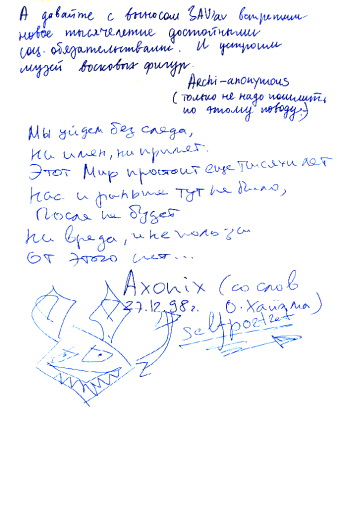 А давайте с выносом ЗАV'ом встретим
новое тысячелетие достойными
соц. обязательствами. И устроим
музей восковых фигур.
Archi-anonymous
(только не надо пошлить,
по этому поводу.)
Мы уйдем без следа,
Ни имен, ни примет.
Этот Мир простоит еще тысячи лет
Нас и раньше тут не было,
После не будет
Ни вреда, и не пользы
От этого нет...
Axonix (со слов
27.12.98г. О. Хайяма)
selfportret